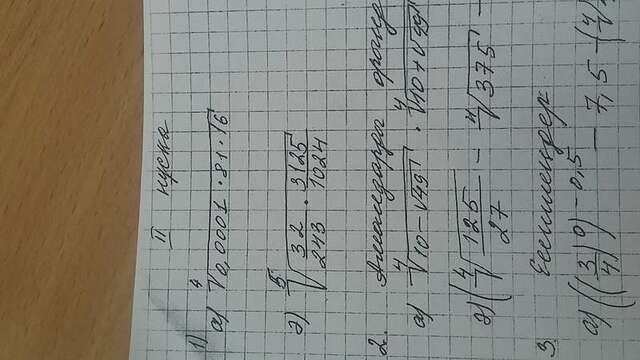 II нуска
1) а) ⁴√0,0001 · 81 · 16
ә) ⁵√32/243 · 3125/1024
2. Амалдарды орынд
а) ⁴√10 - √49 · ⁴√10 + √49
ә) (⁴√125/27 - ⁴√375 -
3. Есептеңдер
а) ((3/4)⁰)^-0,5 - 7,5 - (⁴√